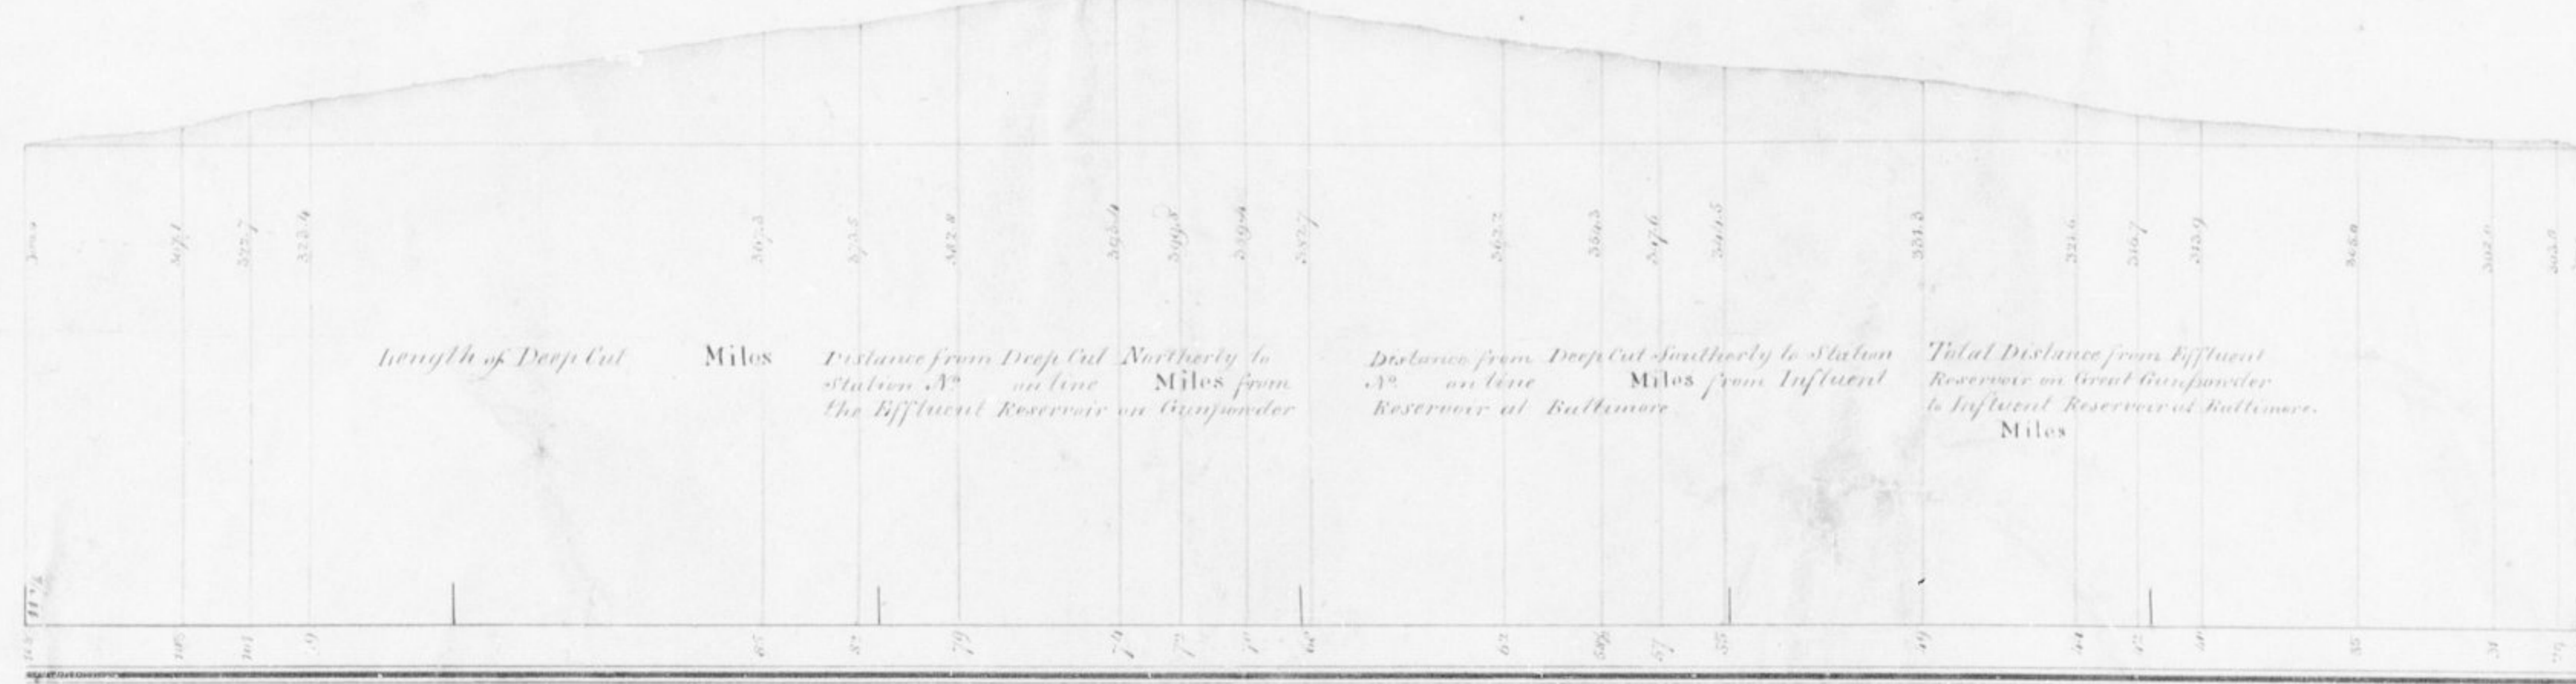 367.3
382.8
399.8
382.7
362.2
354.3
347.6
344.5
331.3
321.6
316.7
313.9
Length of Deep Cut Miles
Distance from Deep Cut Northerly to
Station No. on line Miles from
the Effluent Reservoir on Gunpowder
Distance from Deep Cut Southerly to Station
No. on line Miles from Influent
Reservoir at Baltimore
Total Distance from Effluent
Reservoir on Great Gunpowder
to Influent Reservoir at Baltimore.
Miles
101
85
82
79
74
72
70
68
62
59
57
55
49
44
42
40
35
31